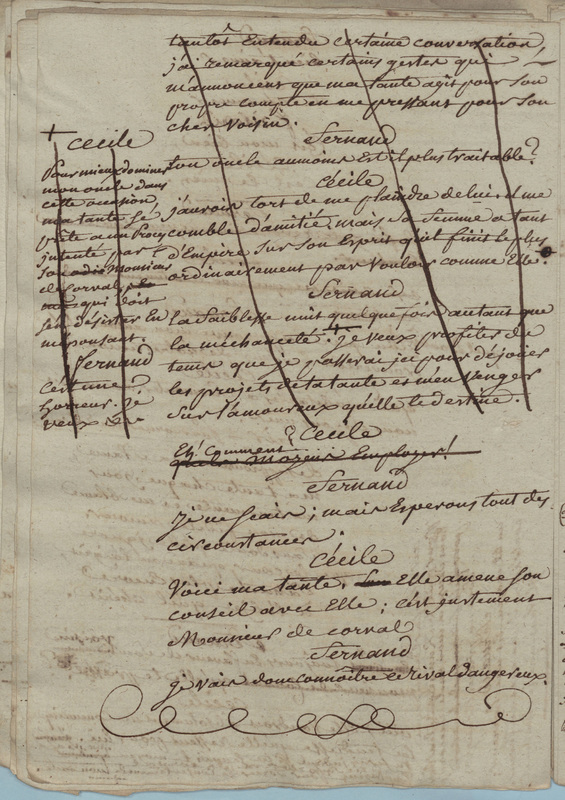 tantôt Entendu certaine conversation,
j'ai remarqué certains gestes qui
m'annoncent que ma tante agit pour son
propre compte en me pressant pour son
cher voisin.
Fernand
ton oncle au moins Est il plus traitable?
Cécile
j'aurois tort de me plaindre de lui, il me
comble d'amitié, mais sa femme a tant
d'Empire sur son Esprit qu'il finit le plus
ordinairement par vouloir comme Elle.
Fernand
La faiblesse nuit quelque fois autant que
la méchanceté. je veux profiter du
tems que je passerai ici pour déjouer
les projets de ta tante et m'en venger
sur l'amoureux qu'elle te destine.
+ Cecile
Pour mieux dominer
mon oncle dans
cette occasion,
ma tante se
prête a un Procès
intenté par
Monsieur
de Corval,
qui doit
s'en désister En
m'épousant.
Fernand
C'est une
horreur. Je
veux &c
Cecile
Eh! Comment
quels Moyens Employer!
Fernand
Je ne scais; mais Esperons tout des
circonstances.
Cécile
Voici ma tante. Elle amene son
conseil avec Elle; c'est justement
Monsieur de corval
Fernand
je vais donc connoître ce rival dangereux.